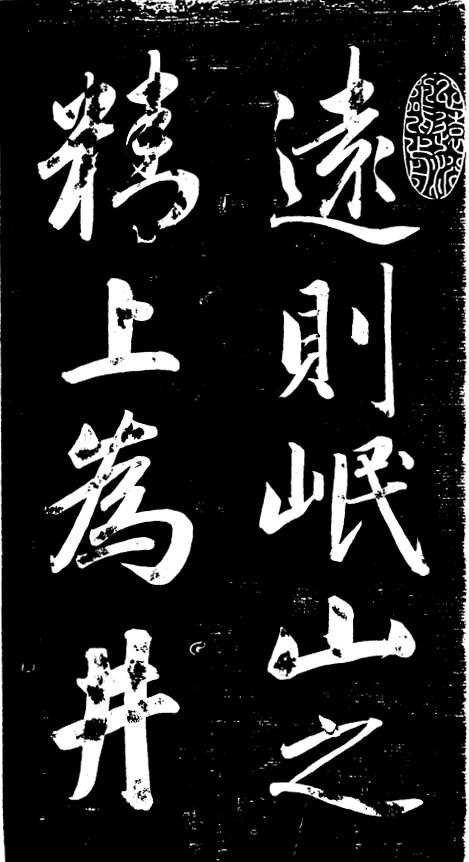 遠則岷山之
精上為井